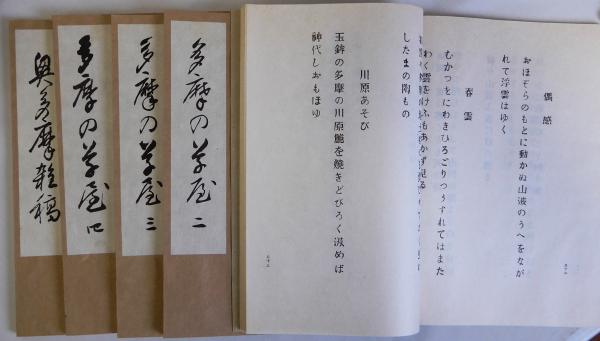 偶感
おほぞらのもとに動かぬ山波のうへをなが
れて浮雲はゆく
春雲
むかつをにわきひろごりつうすれてはまた
わく雲をけふもあかず見る
したまの陶もの
川原あそび
玉鉾の多摩の川原に
を焼きどびろく汲めば
神代しおもほゆ
多摩の草屋 二
多摩の草屋 三
多摩の草屋 四
奥多摩雑稿